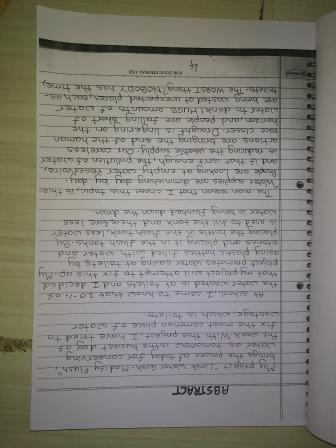 ABSTRACT
My project "Limit Water Gush-Modify Flush",
brings the power of today for conserving
water as tomorrow is the busiest day of
the week. With this project, I have tried to
fix the most common place of water
wastage, which is toilets.
At school, I came to know that 20 % of
the water wasted is at toilets and I decided
that my project will attempt to fix this up. My
project promotes water saving at toilets by
using plastic bottles filled with water and
stones and placing it in the flush tanks. By
placing the bottle in the flush tank, less water
is used to fill the tank and therefore, less
water is being flushed down the drain.
The main reason that I chose this topic, is this:
"Water supplies are diminishing day by day.
People are looking at empty water reservoirs,
and if that isn't enough, the pollution of water
is reducing the whole supply. Our careless
actions are bringing the end of the human
race closer. Drought is lingering on the
horizon, and people are falling short of
water to drink! HUGE amounts of water
are being wasted at unexpected places, such as-
toilets. The WORST thing? NOBODY has the time,
FOR EDUCATIONAL USE
4